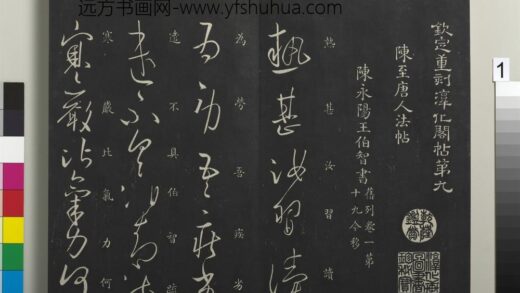 远方书画网- www.yfshuhua.com
1
欽定重刻淳化閣帖第九
陳至唐人法帖
陳永陽王伯智書
舊列卷一第
十九今移
熱甚汝習讀
熱甚汝習讀
為勞吾疾劣
為勞吾疾劣
遠不具伯智
遠不具伯智
寒嚴比氣力何
寒嚴比氣力何